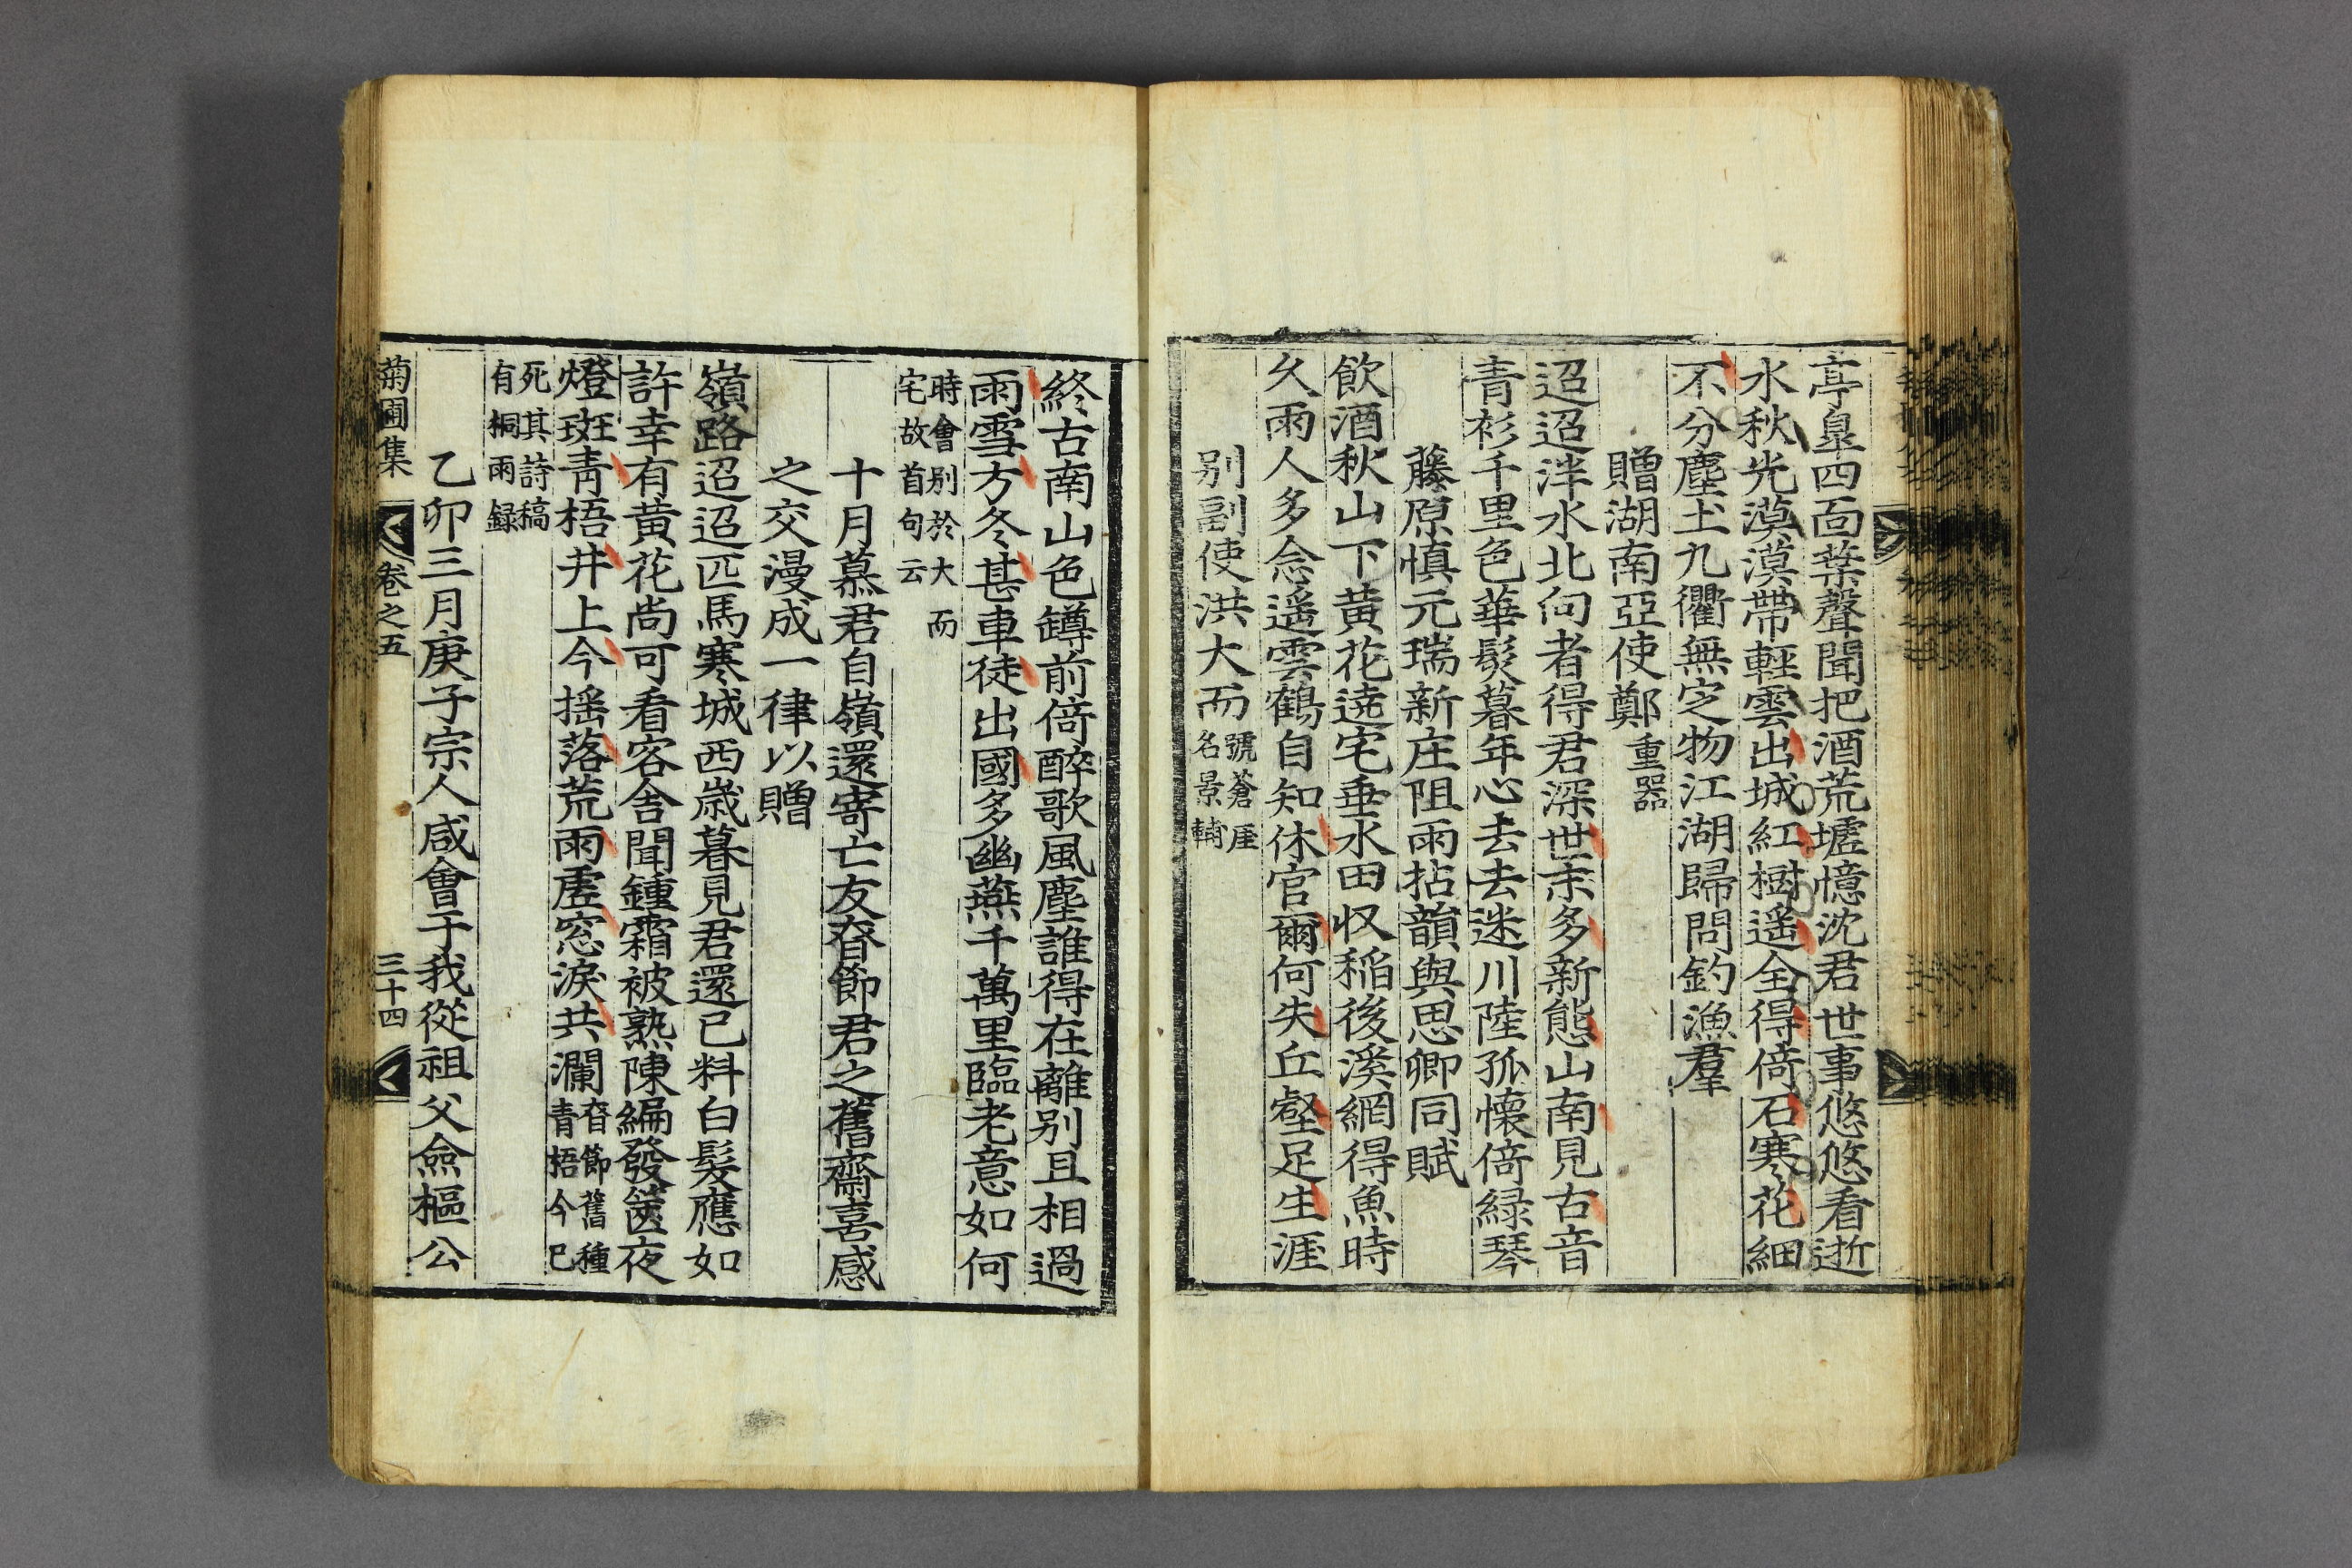 亭皐四面葉聲聞把酒荒墟憶沈君世事悠悠看逝
水秋光漠漠帶輕雲出城紅樹遥全得倚石寒花細
不分塵土九衢無定物江湖歸問釣漁羣
贈湖南亞使鄭重器
迢迢泮水北向者得君深世未多新態山南見古音
青衫千里色華髮暮年心去去迷川陸孤懷倚緑琴
藤原愼元瑞新庄阻雨拈韻與思卿同賦
飮酒秋山下黄花遶宅垂水田収稻後溪網得魚時
久雨人多念遥雲鶴自知休官爾何失丘壑足生涯
别副使洪大而號蒼厓
名景輔
終古南山色罇前倚醉歌風塵誰得在離别且相過
雨雪方冬甚車徒出國多幽燕千萬里臨老意如何
時會别於大而
宅故首句云
十月慕君自嶺還寄亡友春節君之舊齋喜感
之交漫成一律以贈
嶺路迢迢匹馬寒城西嵗暮見君還已料白髮應如
許幸有黄花尚可看客舍聞鍾霜被熟陳編發篋夜
燈斑靑梧井上今摇落荒雨虗窓淚共瀾春節舊種
青梧今已
死其詩稿
有桐雨録
乙卯三月庚子宗人咸會于我從祖父僉樞公
菊圃集 卷之五 三十四